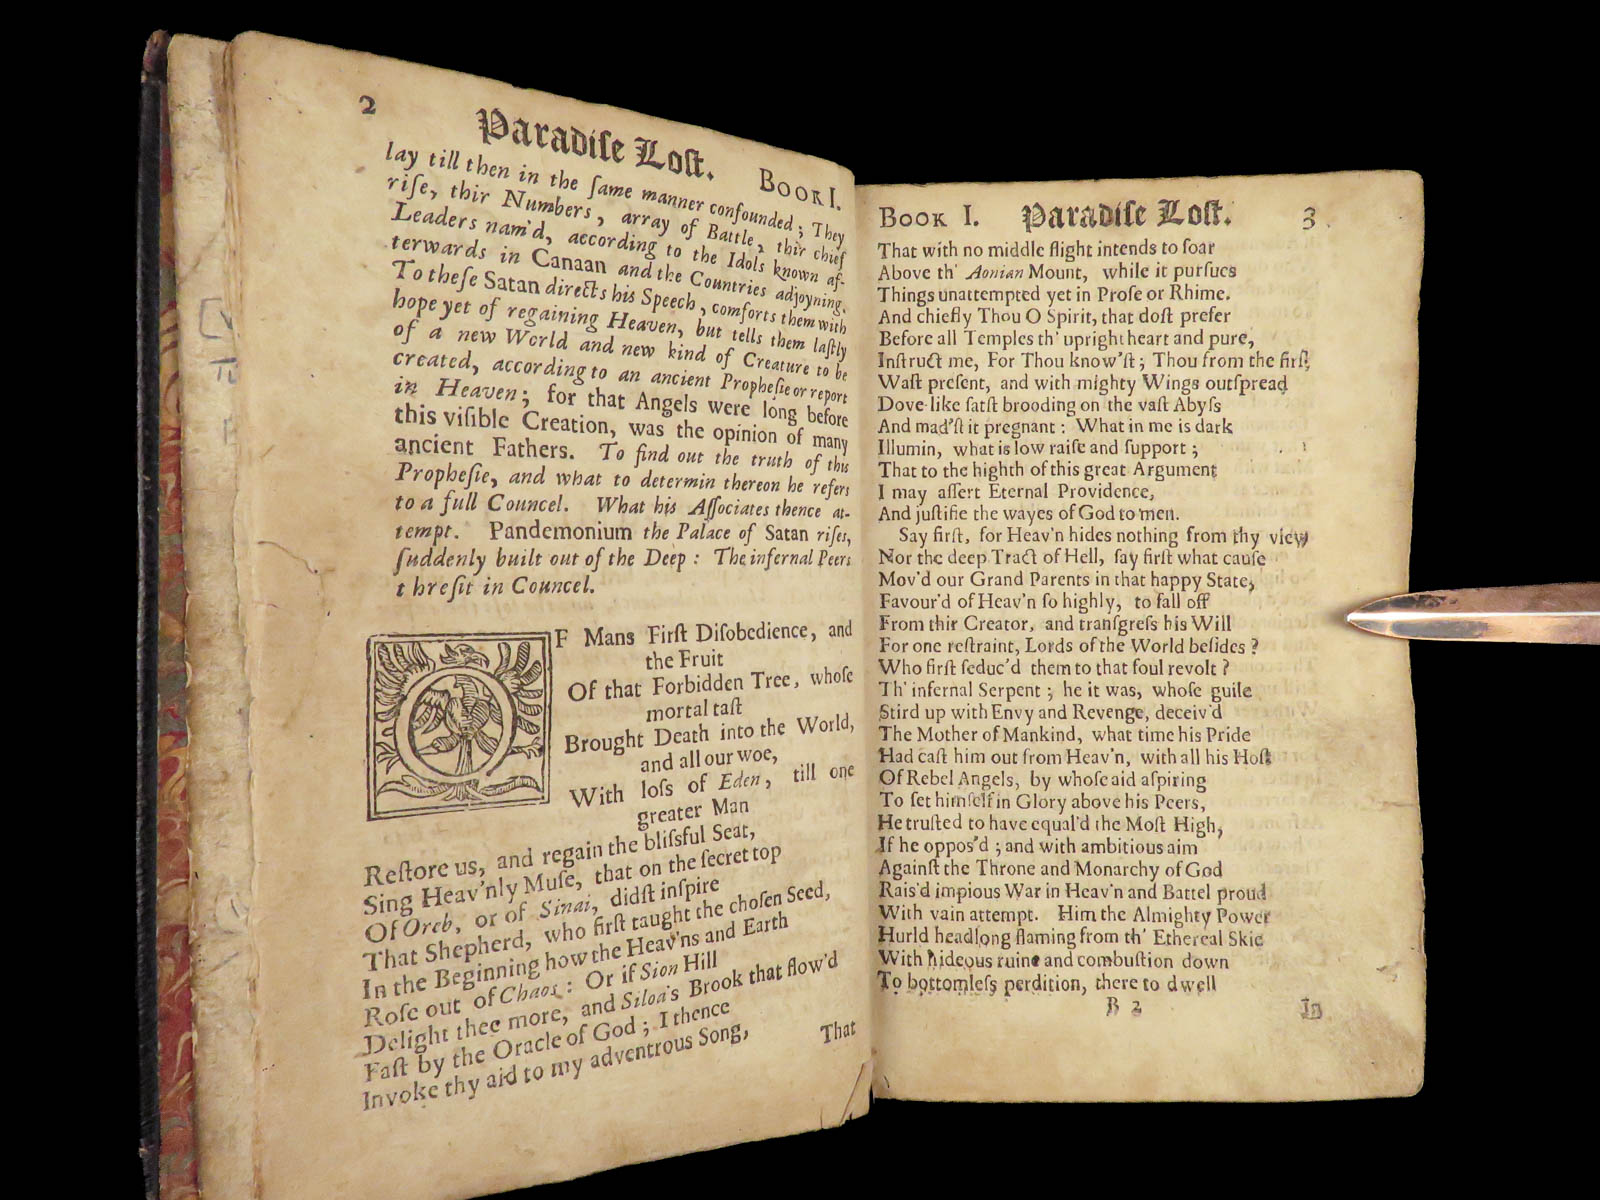 2
Paradiſe Loſt.
Book I.
lay till then in the ſame manner confounded; They
riſe, thir Numbers, array of Battle, thir chief
Leaders nam'd, according to the Idols known af-
terwards in Canaan and the Countries adjoyning.
To theſe Satan directs his Speech, comforts them with
hope yet of regaining Heaven, but tells them laſtly
of a new World and new kind of Creature to be
created, according to an ancient Propheſie or report
in Heaven; for that Angels were long before
this viſible Creation, was the opinion of many
ancient Fathers. To find out the truth of this
Propheſie, and what to determin thereon he refers
to a full Councel. What his Aſſociates thence at-
tempt. Pandemonium the Palace of Satan riſes,
ſuddenly built out of the Deep: The infernal Peers
there ſit in Councel.
OF Mans Firſt Diſobedience, and
the Fruit
Of that Forbidden Tree, whoſe
mortal taſt
Brought Death into the World,
and all our woe,
With loſs of Eden, till one
greater Man
Reſtore us, and regain the bliſsful Seat,
Sing Heav'nly Muſe, that on the ſecret top
Of Oreb, or of Sinai, didſt inſpire
That Shepherd, who firſt taught the choſen Seed,
In the Beginning how the Heav'ns and Earth
Roſe out of Chaos: Or if Sion Hill
Delight thee more, and Siloa's Brook that flow'd
Faſt by the Oracle of God; I thence
Invoke thy aid to my adventrous Song,
That
Book I. Paradiſe Loſt. 3
That with no middle flight intends to ſoar
Above th' Aonian Mount, while it purſues
Things unattempted yet in Proſe or Rhime.
And chiefly Thou O Spirit, that doſt prefer
Before all Temples th' upright heart and pure,
Inſtruct me, For Thou know'ſt; Thou from the firſt
Waſt preſent, and with mighty Wings outſpread
Dove-like ſatſt brooding on the vaſt Abyſs
And mad'ſt it pregnant: What in me is dark
Illumin, what is low raiſe and ſupport;
That to the highth of this great Argument
I may aſſert Eternal Providence,
And juſtifie the wayes of God to men.
Say firſt, for Heav'n hides nothing from thy view
Nor the deep Tract of Hell, ſay firſt what cauſe
Mov'd our Grand Parents in that happy State,
Favour'd of Heav'n ſo highly, to fall off
From thir Creator, and tranſgreſs his Will
For one reſtraint, Lords of the World beſides?
Who firſt ſeduc'd them to that foul revolt?
Th' infernal Serpent; he it was, whoſe guile
Stird up with Envy and Revenge, deceiv'd
The Mother of Mankind, what time his Pride
Had caſt him out from Heav'n, with all his Hoſt
Of Rebel Angels, by whoſe aid aſpiring
To ſet himſelf in Glory above his Peers,
He truſted to have equal'd the Moſt High,
If he oppos'd; and with ambitious aim
Againſt the Throne and Monarchy of God
Rais'd impious War in Heav'n and Battel proud
With vain attempt. Him the Almighty Power
Hurld headlong flaming from th' Ethereal Skie
With hideous ruine and combuſtion down
To bottomleſs perdition, there to dwell
B 2
In